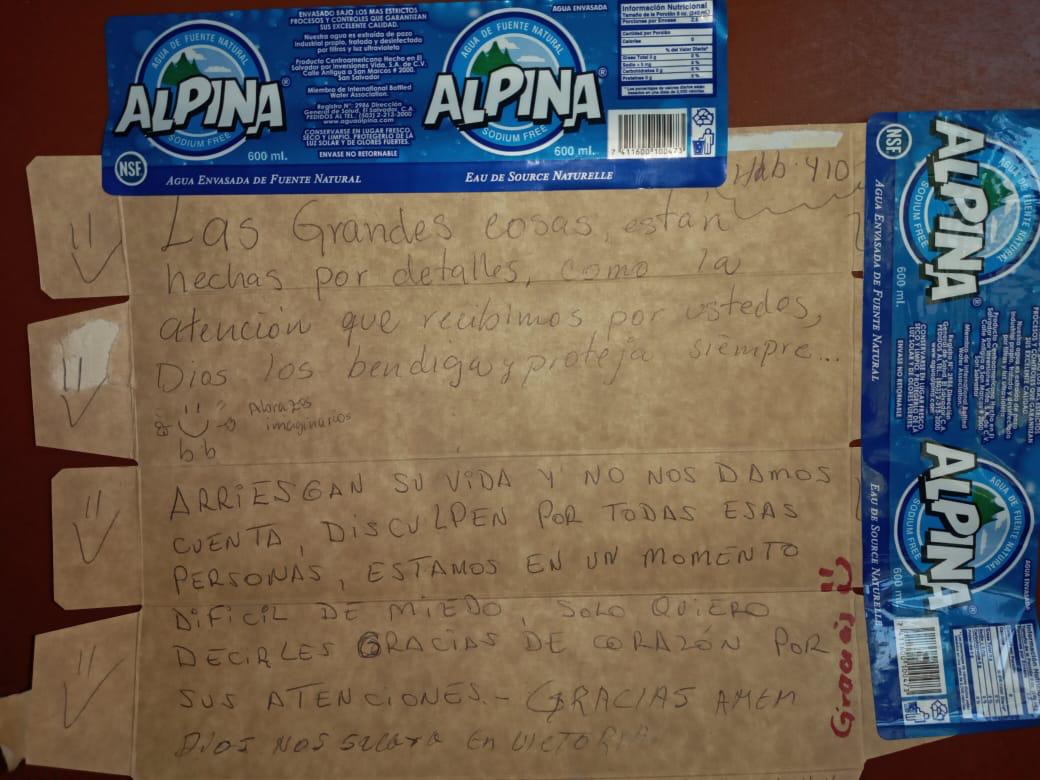 ENVASADO BAJO LOS MAS ESTRICTOS
PROCESOS Y CONTROLES QUE GARANTIZAN
SUS EXCELENTE CALIDAD.
Nuestra agua es extraída de pozo
industrial propio, tratada y desinfectada
por filtros y luz ultravioleta
Producto Centroamericano Hecho en El
Salvador por Inversiones Vida, S.A. de C.V.
Calle Antigua a San Marcos # 2000.
San Salvador
Miembro de International Bottled
Water Association.
Registro N°: 2986 Dirección
General de Salud, El Salvador, C.A.
PEDIDOS AL TEL. (503) 2-213-2000
www.agualpina.com
CONSERVARSE EN LUGAR FRESCO,
SECO Y LIMPIO, PROTEGERLO DE LA
LUZ SOLAR Y DE OLORES FUERTES.
ENVASE NO RETORNABLE
AGUA DE FUENTE NATURAL
ALPINA®
SODIUM FREE
600 ml.
NSF
AGUA ENVASADA DE FUENTE NATURAL
AGUA ENVASADA
AGUA DE FUENTE NATURAL
ALPINA®
SODIUM FREE
600 ml.
EAU DE SOURCE NATURELLE
Información Nutricional
Tamaño de la Porción 8 oz. (240 mL)
Porciones por Envase 2.5
Cantidad por Porción
Calorías 0
% del Valor Diario*
Grasa Total 0 g 0 %
Sodio < 5 mg 0 %
Carbohidratos 0 g 0 %
Proteínas 0 g 0 %
7 411600 100473
Hab. 410
Las Grandes cosas están
hechas por detalles, como la
atención que recibimos por ustedes,
Dios los bendiga y proteja siempre...
Abrazos
imaginarios
ARRIESGAN SU VIDA Y NO NOS DAMOS
CUENTA, DISCULPEN POR TODAS ESAS
PERSONAS, ESTAMOS EN UN MOMENTO
DIFICIL DE MIEDO, SOLO QUIERO
DECIRLES GRACIAS DE CORAZÓN POR
SUS ATENCIONES.- GRACIAS AMEN
DIOS NOS SACARA EN VICTORIA
NSF
AGUA DE FUENTE NATURAL
ALPINA®
SODIUM FREE
600 ml.
AGUA ENVASADA DE FUENTE NATURAL
ENVASE NO RETORNABLE
AGUA DE FUENTE NATURAL
ALPINA®
SODIUM FREE
600 ml.
EAU DE SOURCE NATURELLE
AGUA ENVASADA